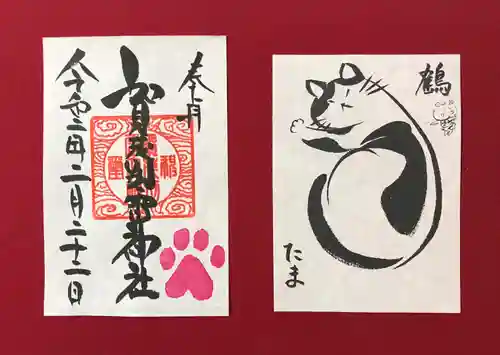 奉拝
賀茂別雷神社
令和二年二月二十二日
鶴
たま